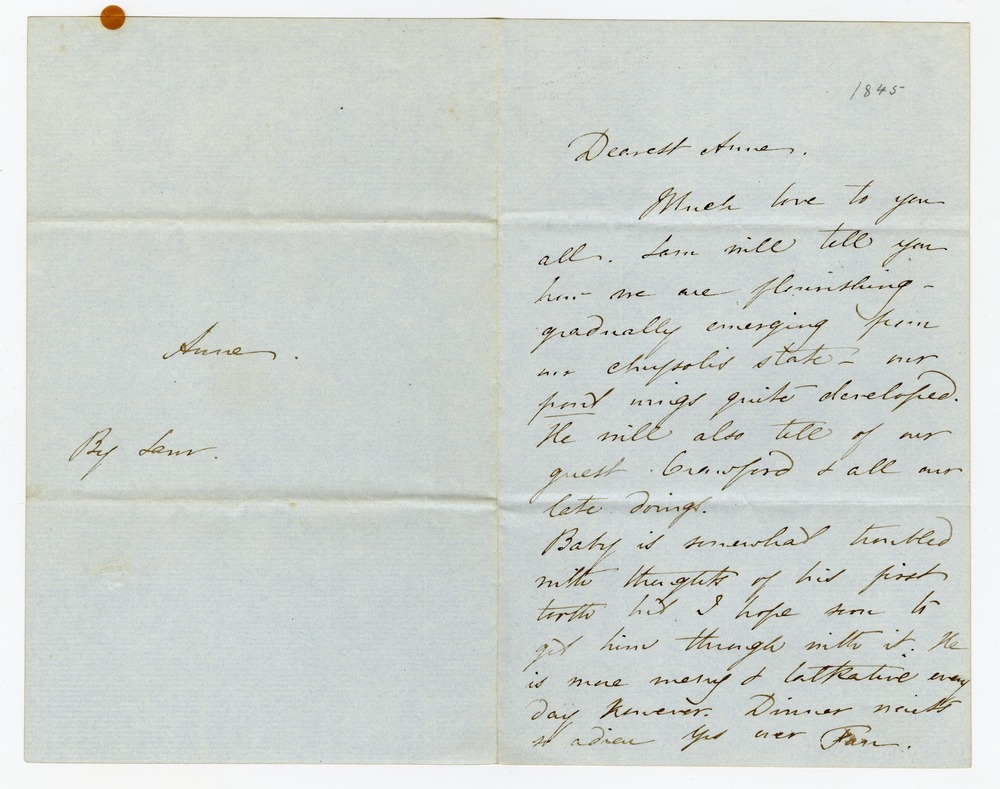 Anne.
By Sam.
1845
Dearest Anne.
Much love to you
all. Sam will tell you
how we are flourishing -
gradually emerging from
our chrysolis state - our
wings quite developed.
He will also tell of our
guest Crawford & all our
late doings.
Baby is somewhat troubled
with thoughts of his first
tooth but I hope soon to
get him through with it. He
is more merry & talkative every
day however. Dinner waits
so adieu Yrs ever Fan.